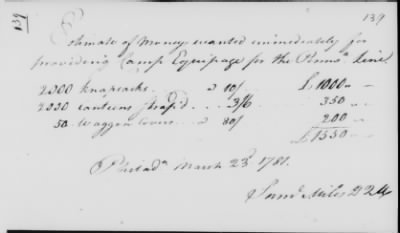 139
139
Estimate of Money wanted immediately for
providing Camp Equipage for the Penns.ª Line.
2000 knapsacks . a 10/ £1000 " "
2000 canteens strap'd . . . 3/6 350 " "
50 Waggon Covers . a 80/ 200 " "
£1550 " "
Philad.ª March 23.ᵈ 1781.
Sam.ˡ Miles D Q M